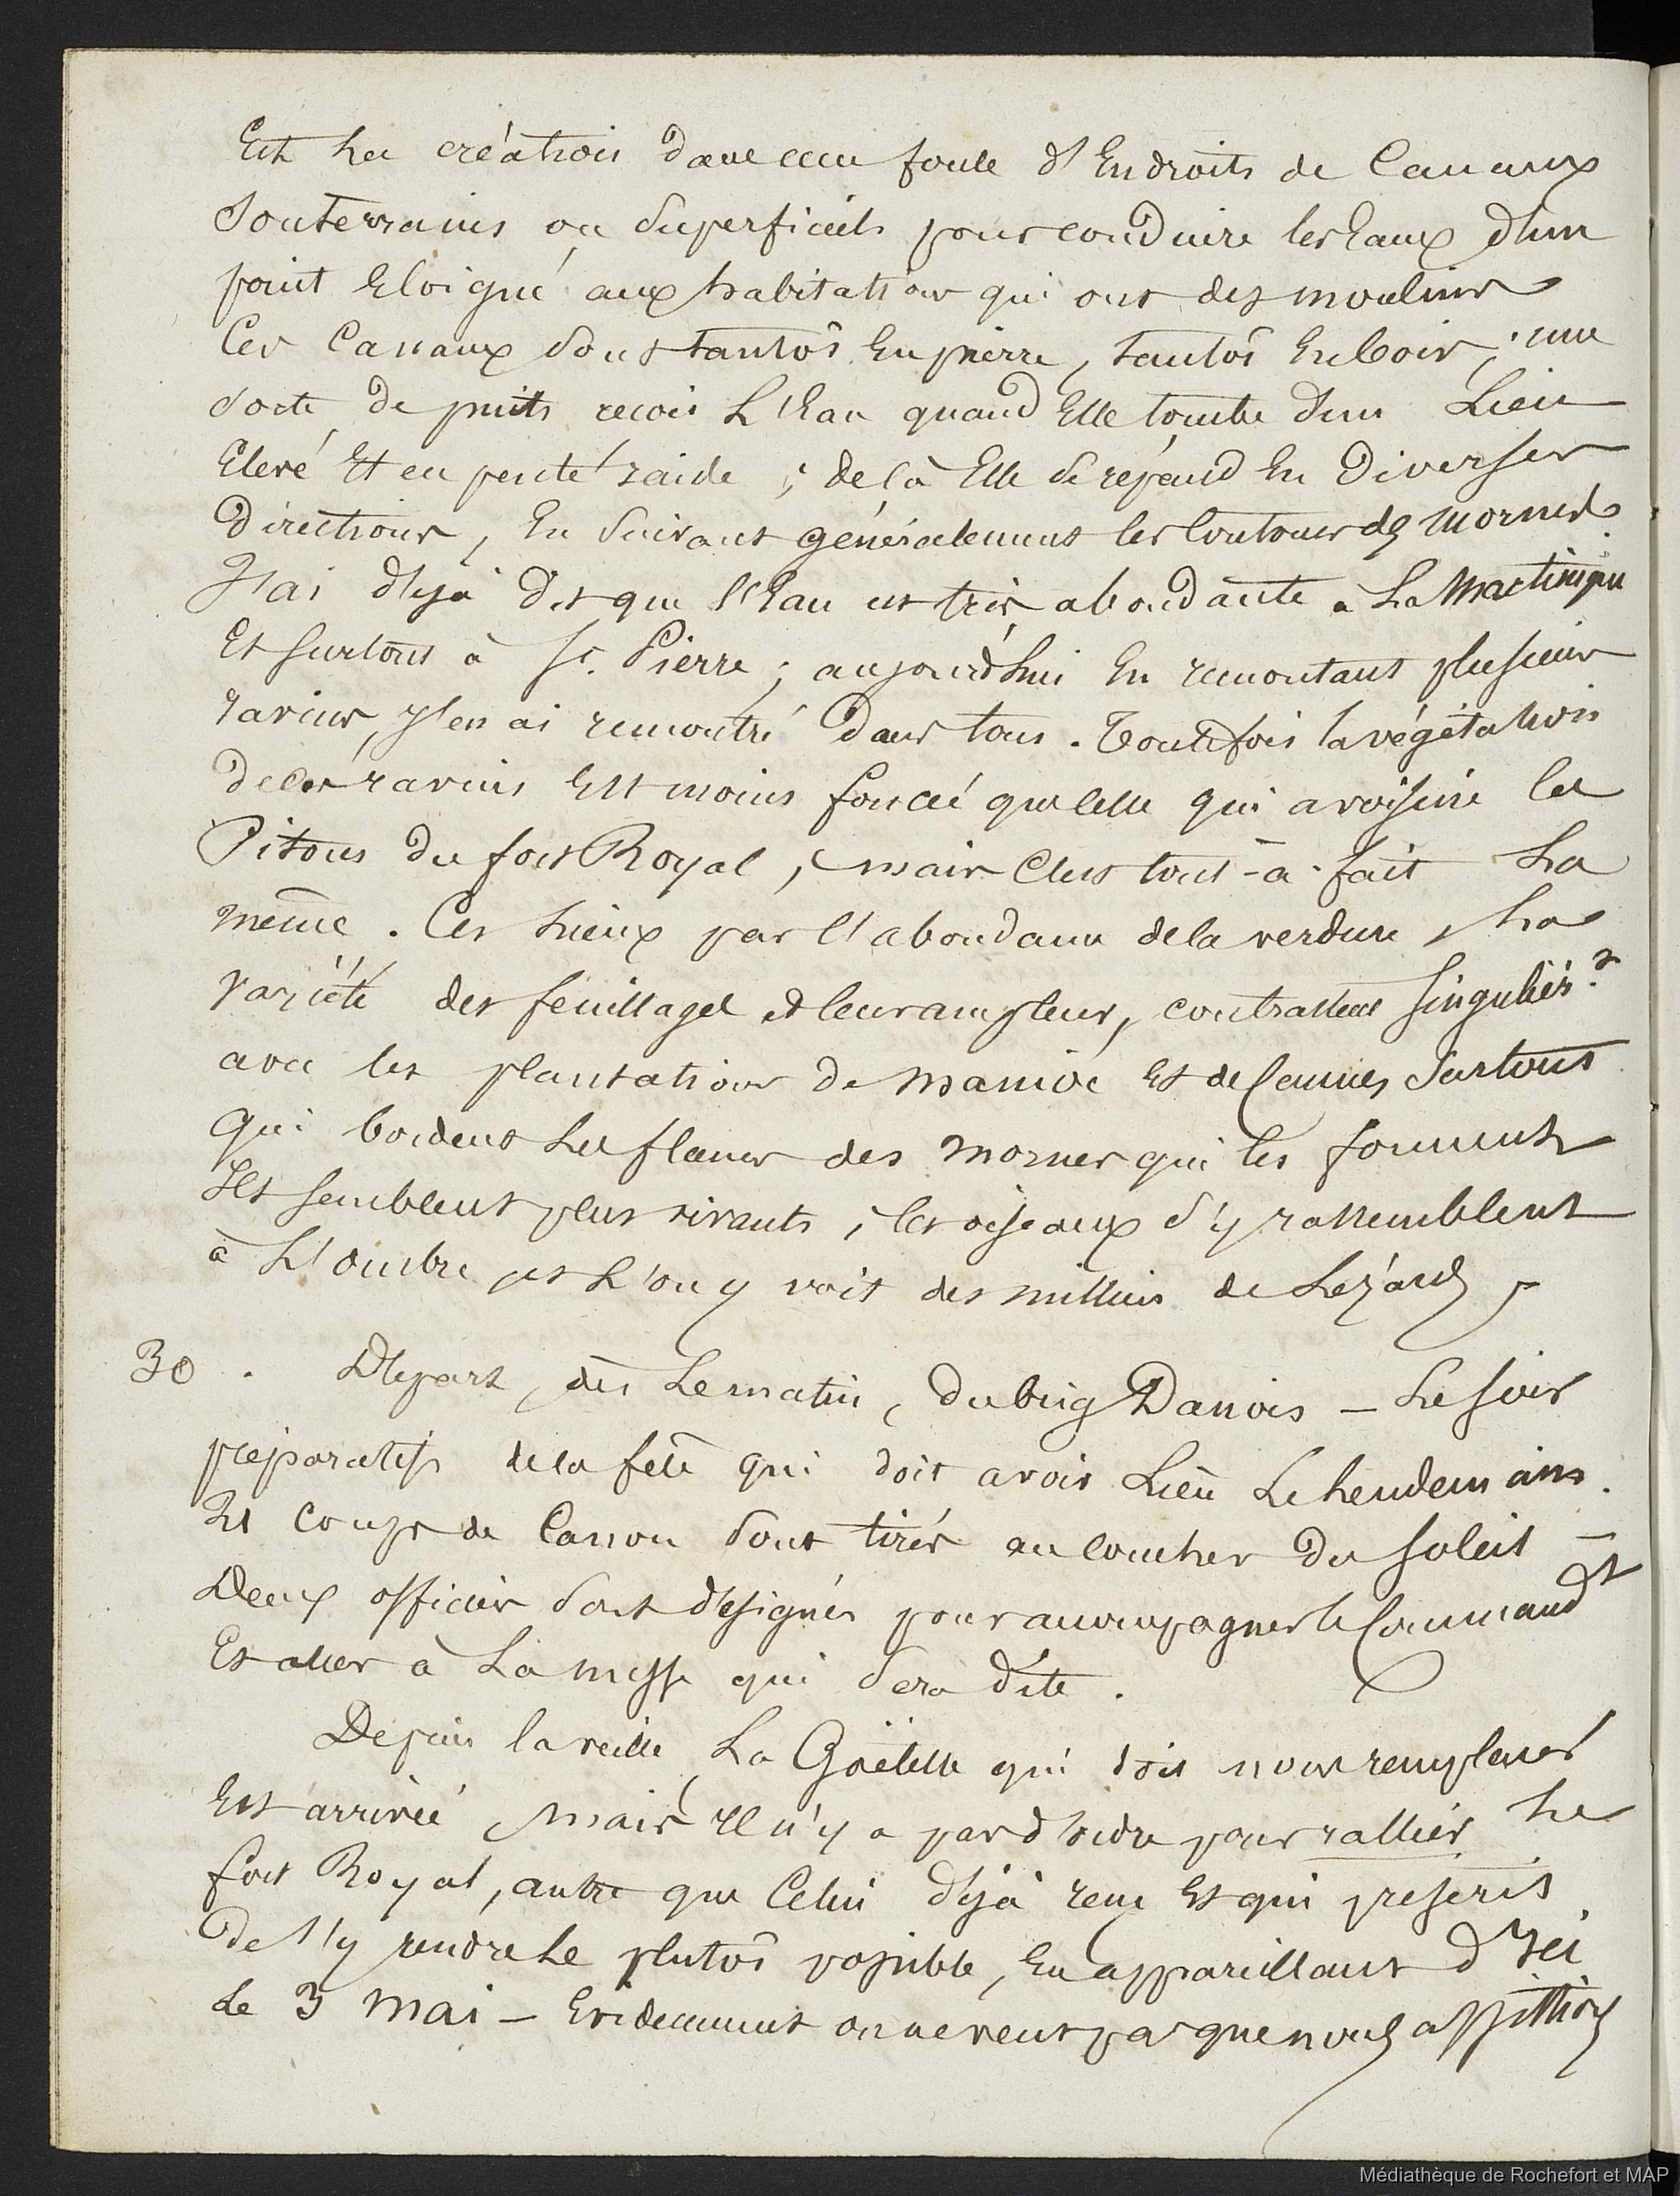 Est La création dans une foule d'Endroits de Canaux
Souterrains ou Superficiels pour conduire les Eaux d'un
point Eloigné aux habitations qui ont des moulins
Ces Canaux sont tantôt En pierre, tantôt En bois ; une
sorte de puits reçoit L'Eau quand Elle tombe d'un Lieu
Elevé Et en pente raide ; de là Elle se répand En Diverses
Directions, En suivant généralement les Contours des Mornes.
J'ai déjà Dit que l'Eau est très abondante à La Martinique
Et surtout à St. Pierre ; aujourd'hui En remontant plusieurs
ravins, j'en ai rencontré Dans tous. Toutefois la végétation
de ces ravins Est moins foncée que celle qui avoisine les
Pitons du fort Royal, mais C'est tout-à-fait La
même. Ces Lieux par l'abondance de la verdure, La
variété des feuillages et leur ampleur, contrastent Singulièrt
avec les plantations de Manioc Et de Cannes Surtout
qui bordent Les flancs des Mornes qui les forment
Ils semblent plus vivants ; les oiseaux s'y rassemblent
à L'ombre et L'on y voit des milliers de Lézards,
30. Départ, dès Le matin, du brig Danois — Le Soir
préparatifs de la fête qui doit avoir Lieu Le Lendemain.
21 Coups de Canon sont tirés au coucher du Soleil —
Deux officiers sont désignés pour accompagner le Commandt
Et aller à La messe qui sera dite.
Depuis la veille La Goëlette qui doit nous remplacer
Est arrivée, Mais Il n'y a pas d'ordre pour rallier Le
fort Royal, autre que Celui déjà reçu Et qui prescrit
de s'y rendre Le plutôt possible, En appareillant d'Ici
Le 3 Mai — Evidemment on ne veut pas que nous assistions
Médiathèque de Rochefort et MAP